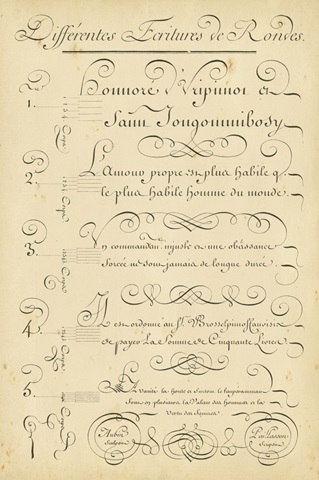 Différentes Ecritures de Rondes.
1.
Honnoré d'Uripinnoi et
Saint Jougomnibosy
2.
L'Amour propre est plus habile q.
le plus habile homme du monde.
3.
Un commandem. injuste et une obéissance
forcée ne sont jamais de longue durée.
4.
Il est ordonné au Sr.
de payer La Somme de Cinquante Livres
5.
la honte
Sont en plusieurs la Valeur des hommes et la
Vertu des femmes.
Aubin
Sculpsit
Paillasson
Scripsit